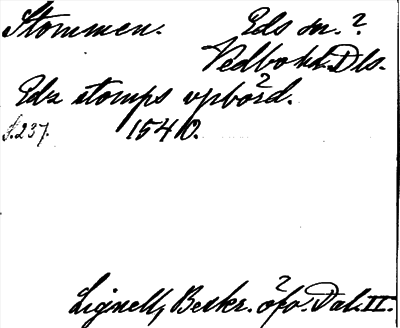 Stommen. Eds sn.?
Vedbo hd. Dls.
Edz stomps vpbörd.
s. 237. 1540.
Lignell, Beskr. öfv. Dal. II.